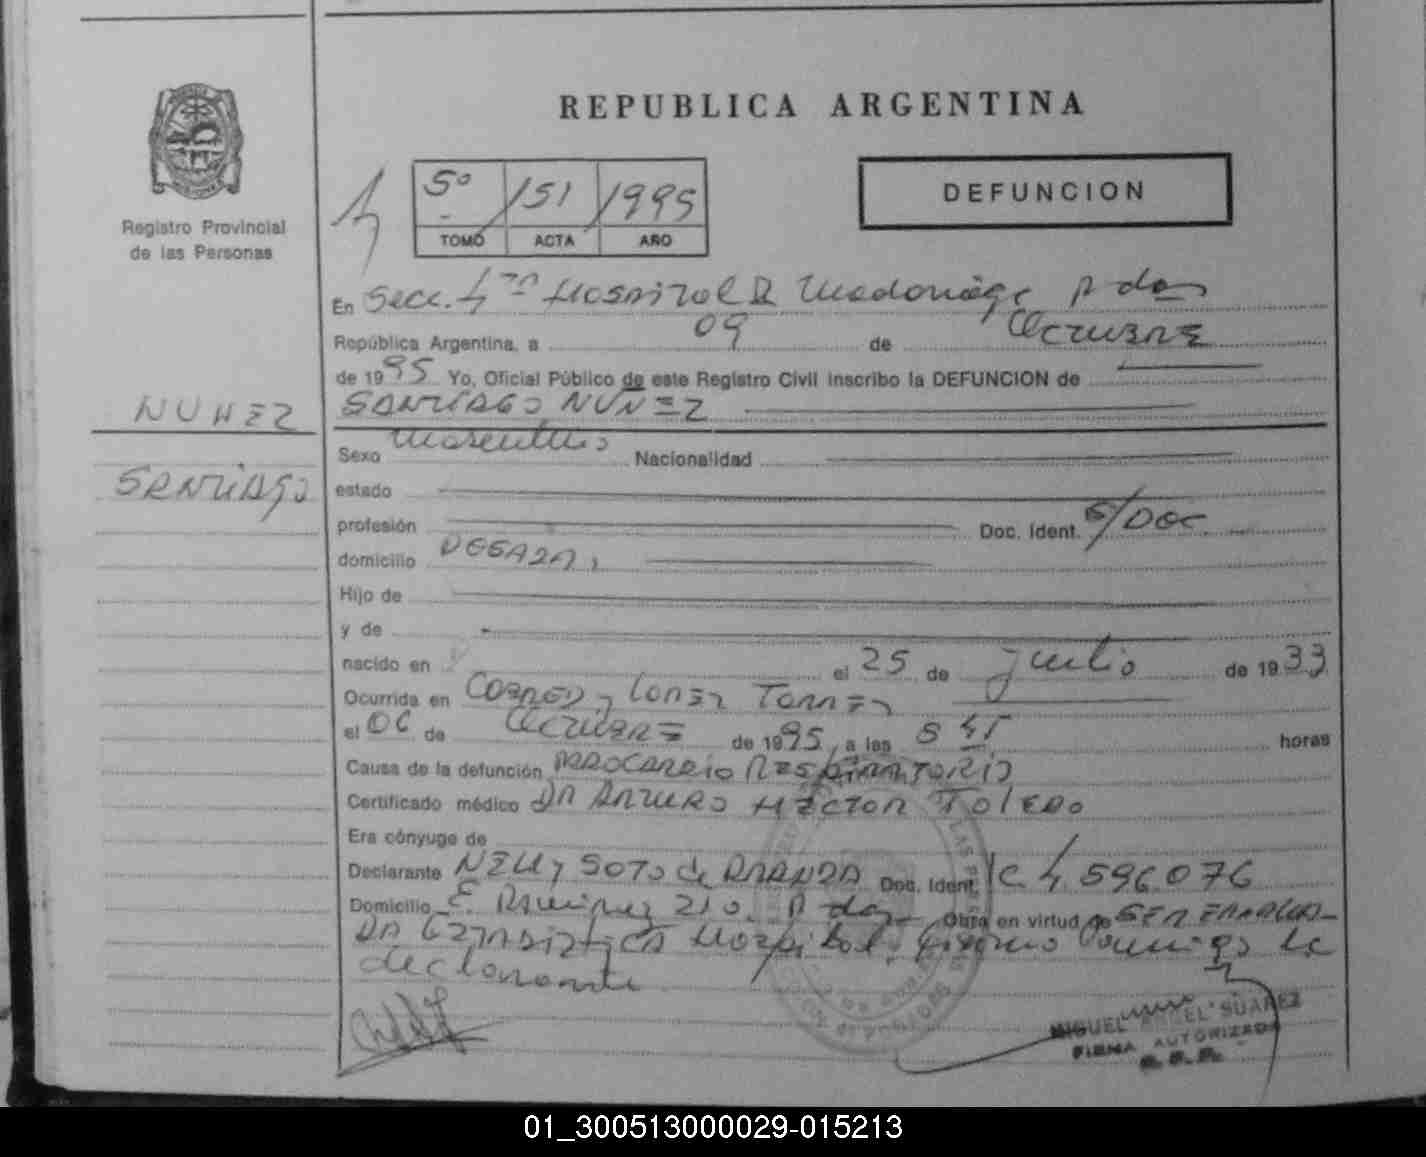 REPUBLICA ARGENTINA
Registro Provincial
de las Personas
5º 151 1995
TOMO ACTA AÑO
DEFUNCION
En Secc. 4ta Hospital R Madariaga Pdas
República Argentina, a 09 de Octubre
de 1995 Yo, Oficial Público de este Registro Civil inscribo la DEFUNCION de
SANTIAGO NUÑEZ
NUÑEZ
SANTIAGO
Sexo masculino Nacionalidad
estado
profesión Doc. Ident. S/DOC
domicilio POSADAS
Hijo de
y de
nacido en el 25 de Julio de 1933
Ocurrida en Lopez Torres
el 06 de Octubre de 1995, a las 8 45 horas
Causa de la defunción PAROCARDIO RESPIRATORIO
Certificado médico DR ARTURO HECTOR TOLEDO
Era cónyuge de
Declarante NELLY SOTO de ARANDA Doc. Ident. IC 4 596 076
Domicilio E. Ramirez 210 Pdas Obra en virtud de SER EMPLEA-
DA ESTADISTICA Hospital, firma conmigo la
declarante
MIGUEL ANGEL SUAREZ
FIRMA AUTORIZADA
01_300513000029-015213